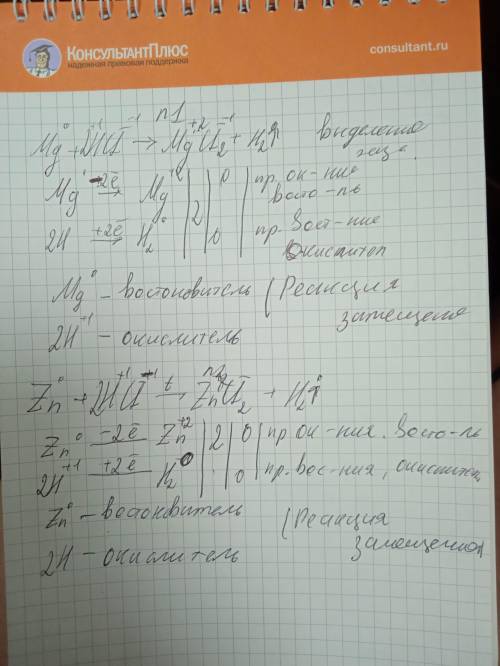 КонсультантПлюс
надежная правовая поддержка
consultant.ru
n1
Mg⁰ + 2H⁺¹Cl⁻¹ → Mg⁺²Cl₂⁻¹ + H₂⁰↑ выделение газа.
Mg –2ē → Mg⁺² | | 0 | пр. ок-ние
восто-ль
2H +2ē → H₂⁰ | 2 | 0 | пр. вост-ние
Окислител
Mg⁰ – востоновитель (Реакция
замещения
2H⁺¹ – окислитель
Zn⁰ + 2H⁺¹Cl⁻¹ t→ ZnCl₂ + H₂↑
Zn⁰ –2ē Zn⁺² | 2 | 0 | пр ок-ния. Восто-ль
2H⁺¹ +2ē H₂⁰ | | 0 | пр. вос-ния, окислител
Zn⁰ – востоновитель (Реакция
замещения
2H – окислитель